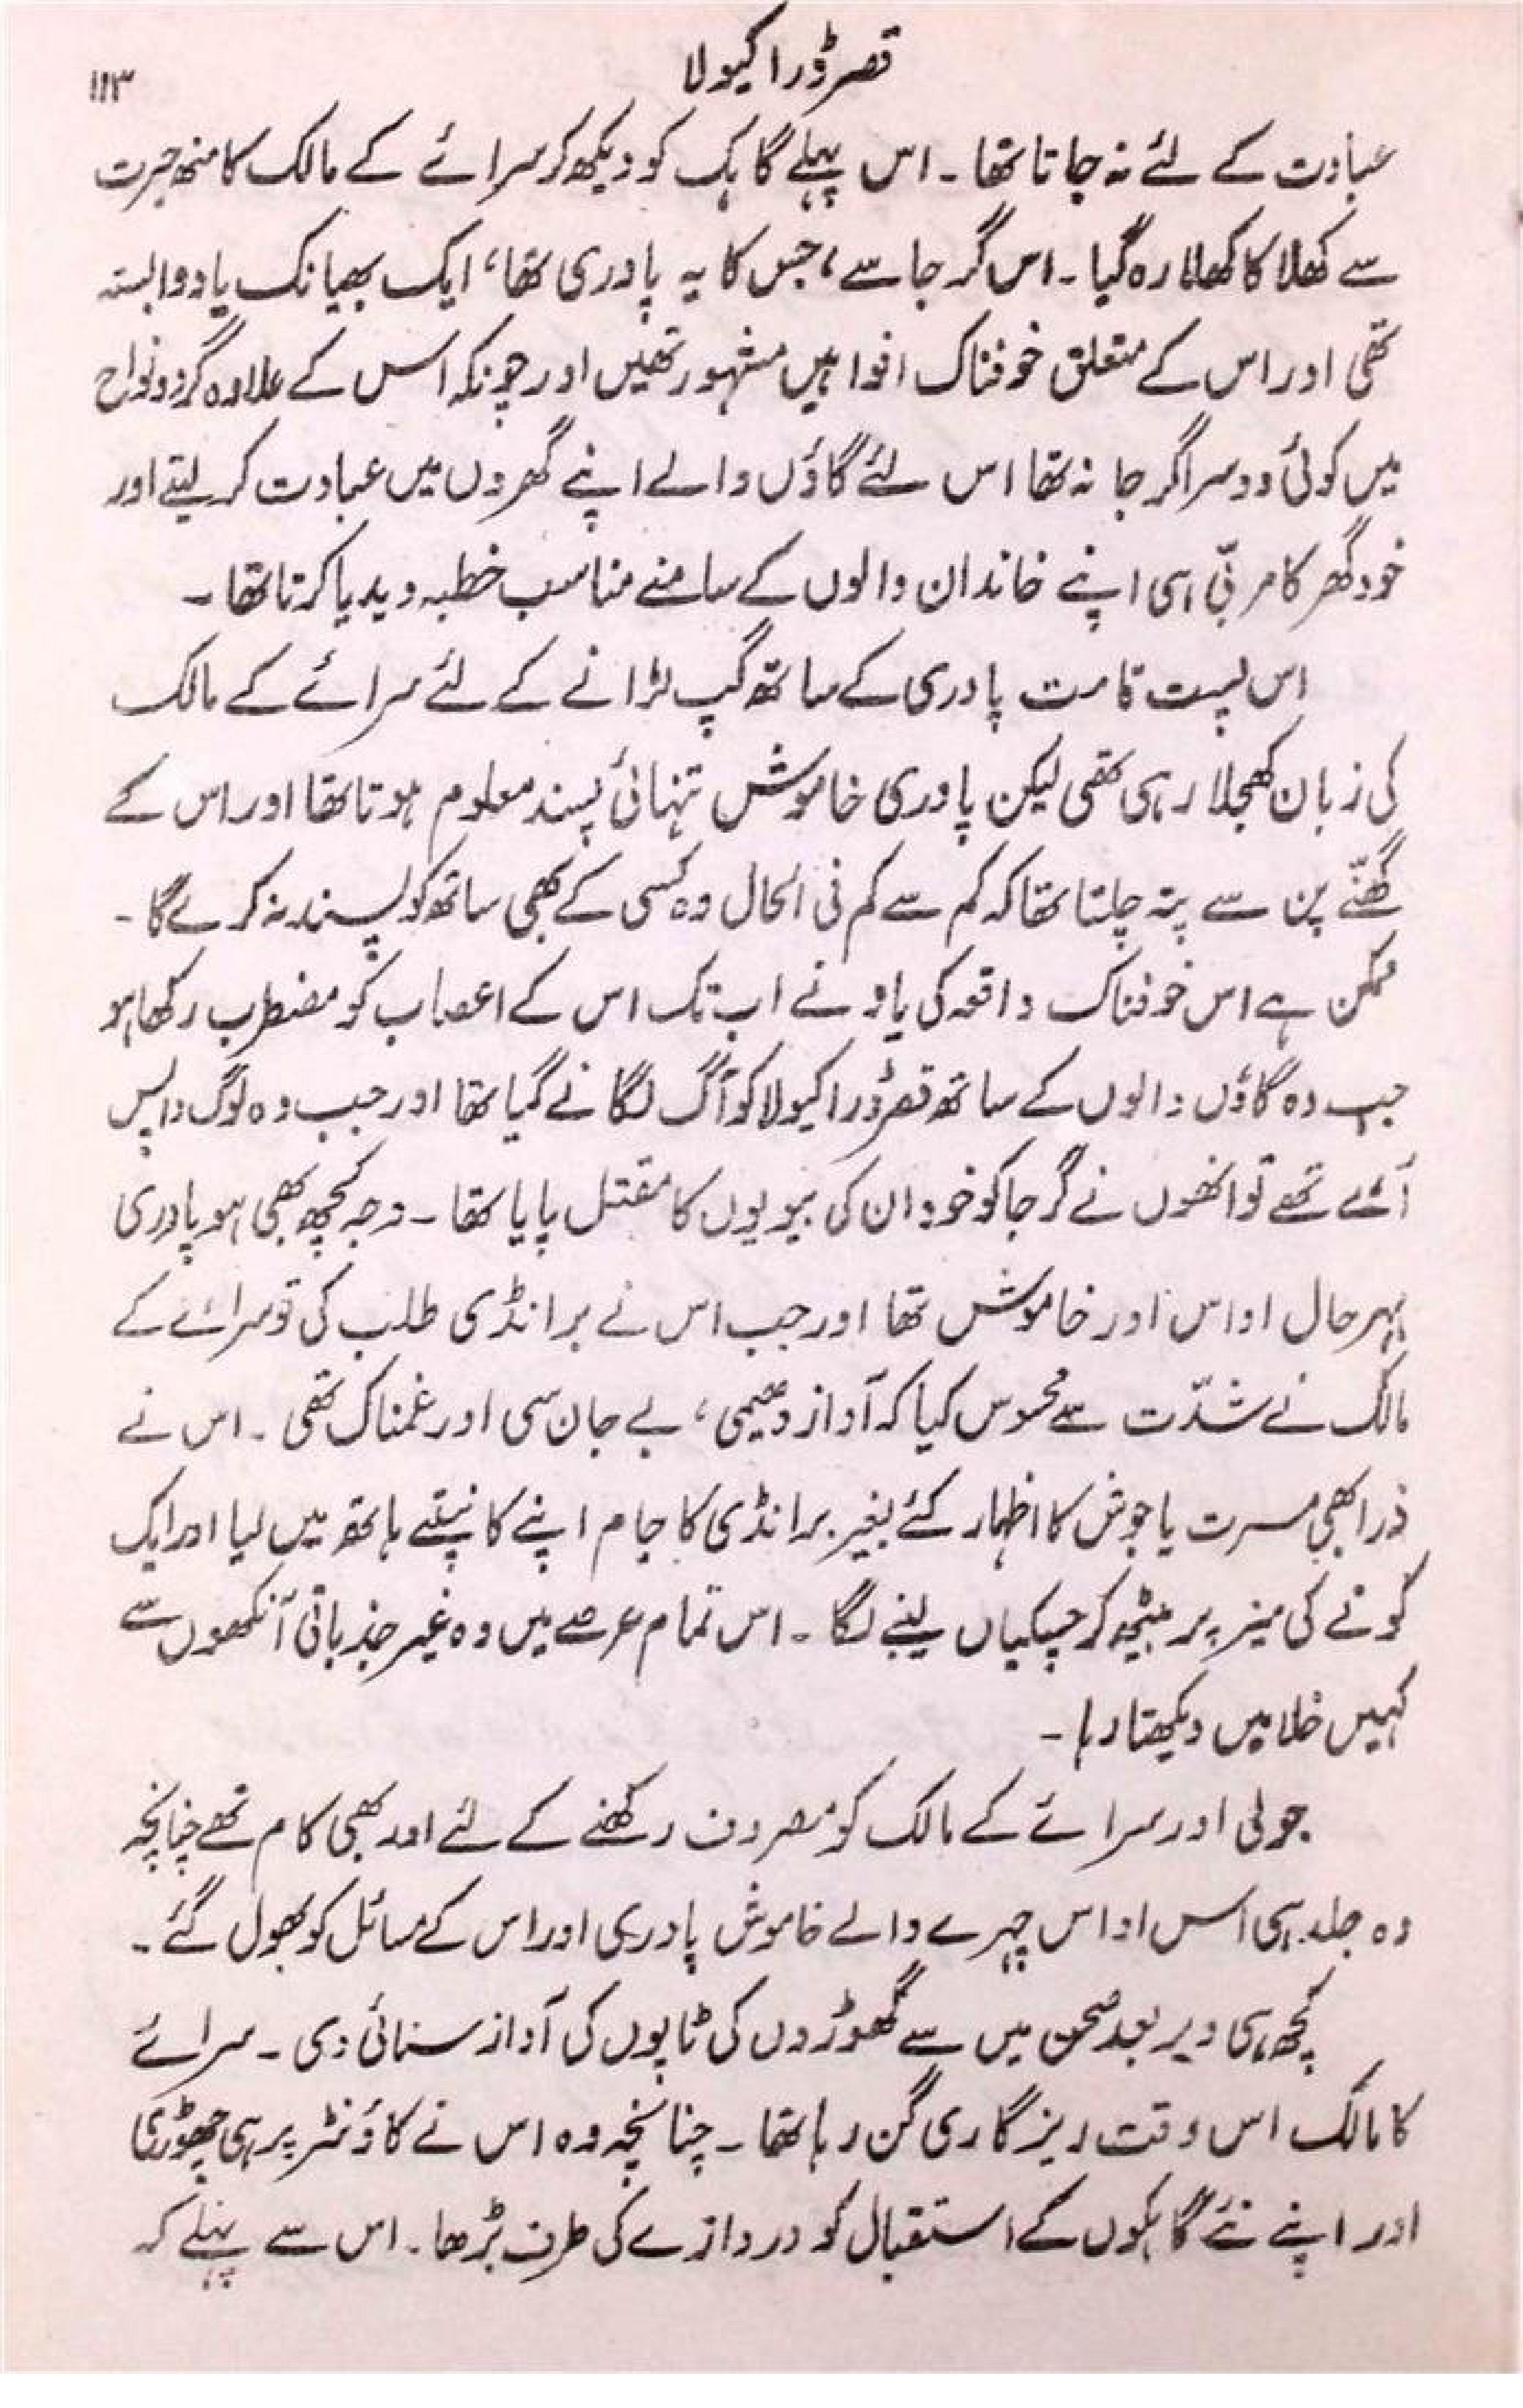 قصر ڈراکیولا
۱۱۳
عبادت کے لئے نہ جاتا تھا ۔ اس پہلے گاہک کو دیکھ کر سرائے کے مالک کا منھ حیرت
سے کھلا کا کھلا رہ گیا ۔ اس گرجا سے، جس کا یہ پادری تھا، ایک بھیانک یاد وابستہ
تھی اور اس کے متعلق خوفناک افواہیں مشہور تھیں اور چونکہ اس کے علاوہ گرد و نواح
میں کوئی دوسرا گرجا نہ تھا اس لئے گاؤں والے اپنے گھروں میں عبادت کر لیتے اور
خود گھر کا مربّی ہی اپنے خاندان والوں کے سامنے مناسب خطبہ دیدیا کرتا تھا ۔
اس پست قامت پادری کے ساتھ گپ لڑانے کے لئے سرائے کے مالک
کی زبان کھجلا رہی تھی لیکن پادری خاموش تنہائی پسند معلوم ہوتا تھا اور اس کے
گھنّے پن سے پتہ چلتا تھا کہ کم سے کم فی الحال وہ کسی کے بھی ساتھ کو پسند نہ کرے گا ۔
ممکن ہے اس خوفناک واقعہ کی یاد نے اب تک اس کے اعصاب کو مضطرب رکھا ہو
جب وہ گاؤں والوں کے ساتھ قصر ڈراکیولا کو آگ لگانے گیا تھا اور جب وہ لوگ واپس
آئے تھے تو انھوں نے گرجا کو خود ان کی بیویوں کا مقتل پایا تھا ۔ وجہ کچھ بھی ہو پادری
بہر حال اداس اور خاموش تھا اور جب اس نے برانڈی طلب کی تو سرائے کے
مالک نے شدّت سے محسوس کیا کہ آواز دھیمی، بے جان سی اور غمناک تھی ۔ اس نے
ذرا بھی مسرت یا جوش کا اظہار کئے بغیر برانڈی کا جام اپنے کانپتے ہاتھ میں لیا اور ایک
کونے کی میز پر بیٹھ کر چسکیاں لینے لگا ۔ اس تمام عرصے میں وہ غیر جذباتی آنکھوں سے
کہیں خلا میں دیکھتا رہا ۔
جولی اور سرائے کے مالک کو مصروف رکھنے کے لئے اور بھی کام تھے چنانچہ
وہ جلد ہی اس اداس چہرے والے خاموش پادری اور اس کے مسائل کو بھول گئے ۔
کچھ ہی دیر بعد صحن میں سے گھوڑوں کی ٹاپوں کی آواز سنائی دی ۔ سرائے
کا مالک اس وقت ریزگاری گن رہا تھا ۔ چنانچہ وہ اس نے کاؤنٹر پر ہی چھوڑی
اور اپنے نئے گاہکوں کے استقبال کو دروازے کی طرف بڑھا ۔ اس سے پہلے کہ